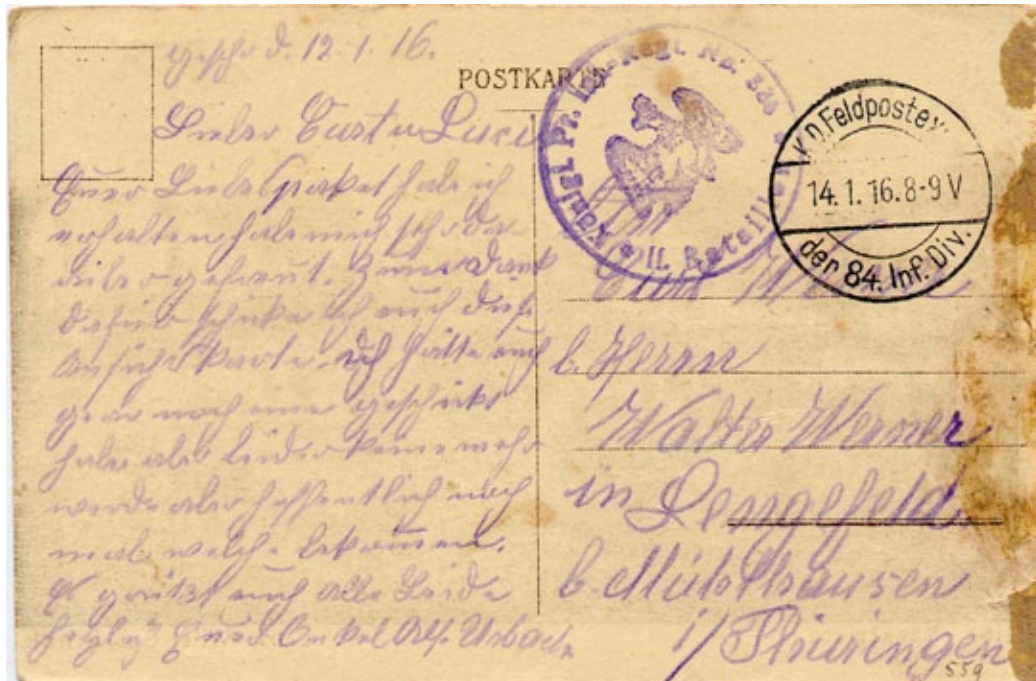 gesch d. 12.1.16.
POSTKARTE
Lieber Curt u Luci
Euer Liebespaket habe ich
erhalten habe mich sehr da
rüber gefreut. Zum Dank
dafür schicke ich euch diese
Ansichtskarte. Ich hätte euch
gern noch eine geschickt
habe aber leider keine mehr
werde aber hoffentlich noch
mal welche bekommen.
Es grüßt euch alle Beide
herzlich Euer Onkel Alf. Urbach
Königl. Pr. Inf.-Regt. No.
* II. Bataill
K.D. Feldpostex.
14.1.16.8-9V
der 84. Inf. Div.
Curt
b. Herrn
Walter Werner
in Lengefeld
b. Mühlhausen
i/Thüringen
559